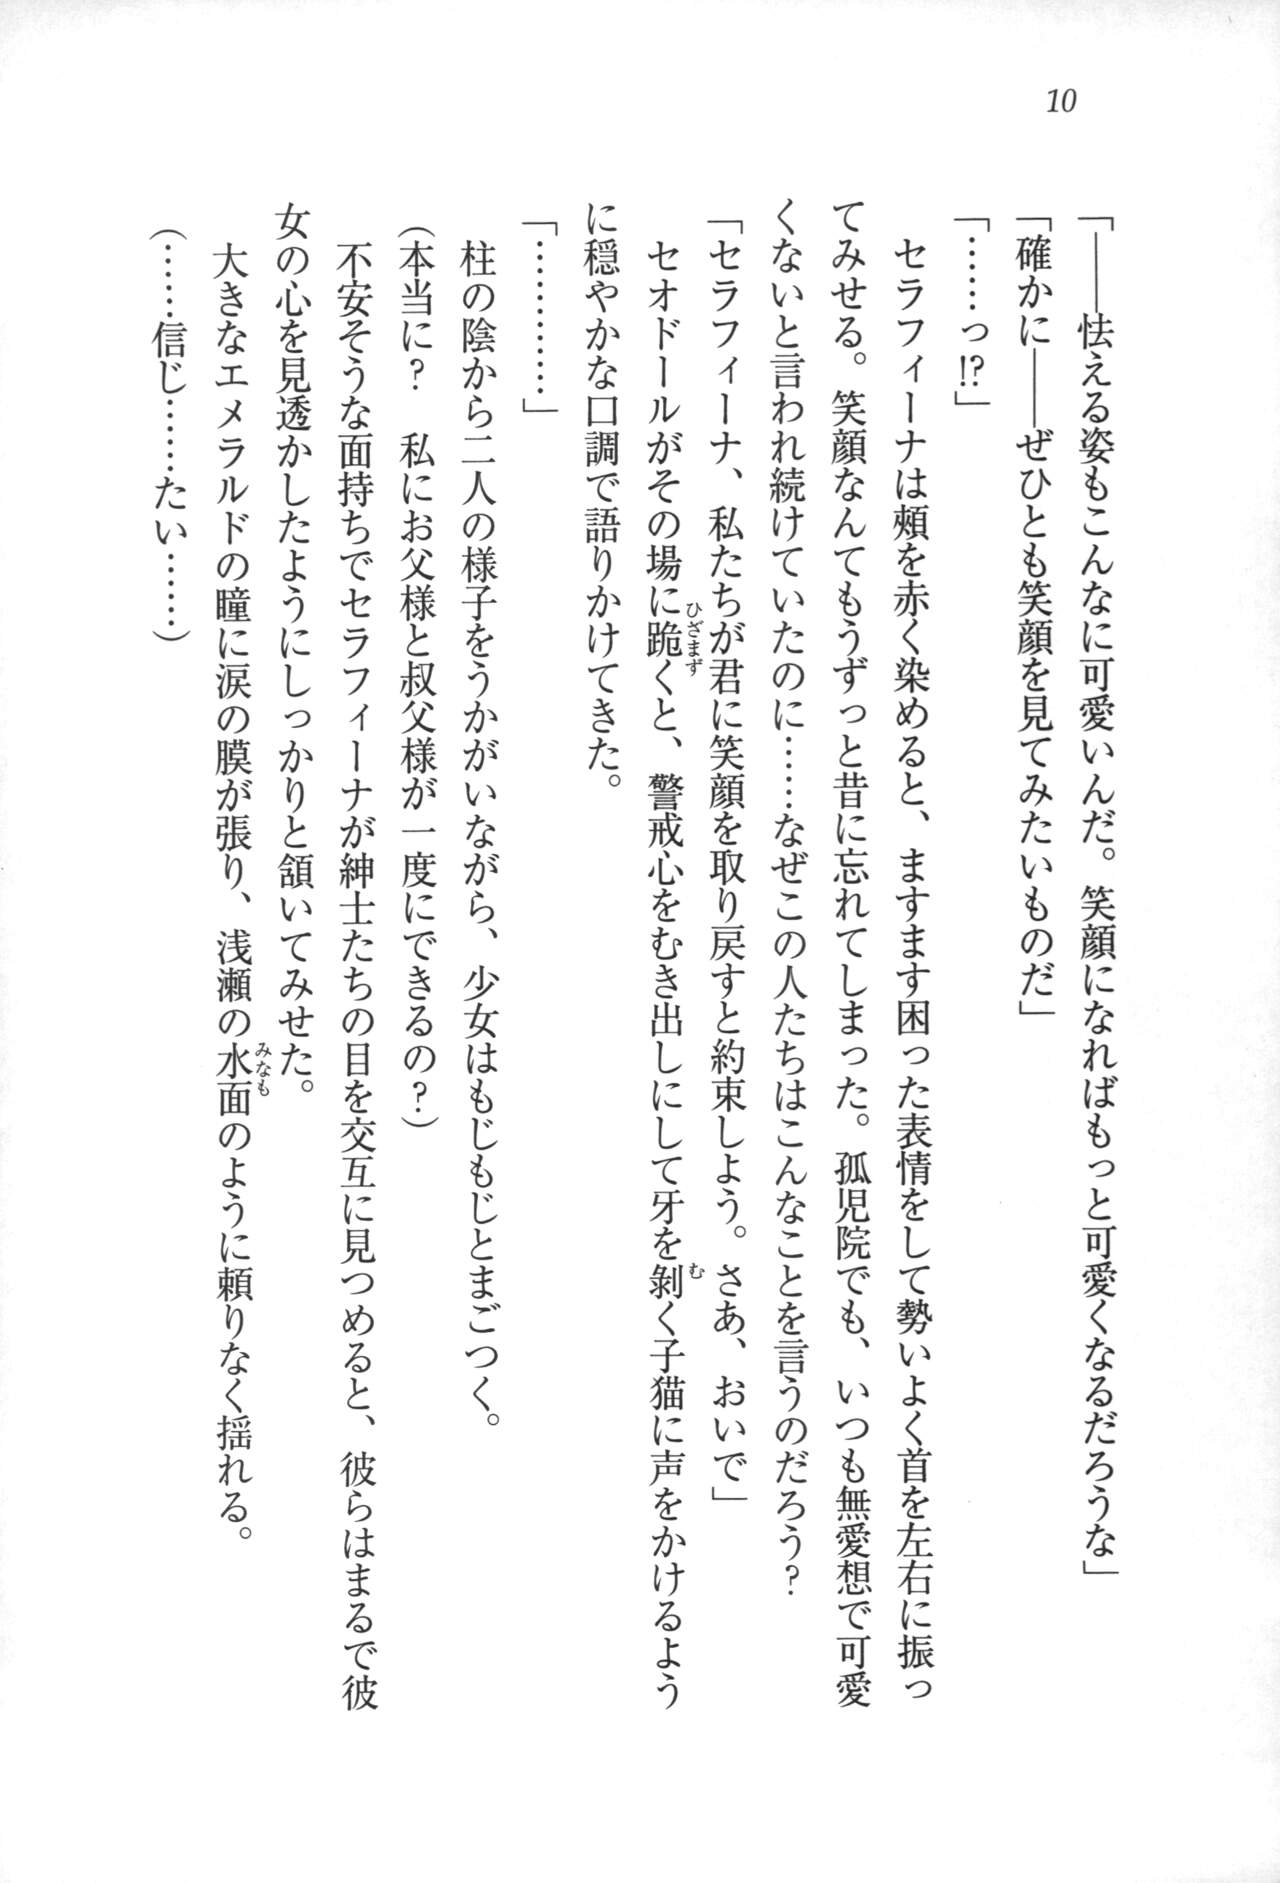 10
「――怯える姿もこんなに可愛いんだ。笑顔になればもっと可愛くなるだろうな」
「確かに――ぜひとも笑顔を見てみたいものだ」
「……っ!?」
セラフィーナは頰を赤く染めると、ますます困った表情をして勢いよく首を左右に振っ
てみせる。笑顔なんてもうずっと昔に忘れてしまった。孤児院でも、いつも無愛想で可愛
くないと言われ続けていたのに……なぜこの人たちはこんなことを言うのだろう?
「セラフィーナ、私たちが君に笑顔を取り戻すと約束しよう。さあ、おいで」
セオドールがその場に跪くと、警戒心をむき出しにして牙を剝く子猫に声をかけるよう
ひざまず
む
に穏やかな口調で語りかけてきた。
「…………」
柱の陰から二人の様子をうかがいながら、少女はもじもじとまごつく。
(本当に? 私にお父様と叔父様が一度にできるの?)
不安そうな面持ちでセラフィーナが紳士たちの目を交互に見つめると、彼らはまるで彼
女の心を見透かしたようにしっかりと頷いてみせた。
大きなエメラルドの瞳に涙の膜が張り、浅瀬の水面のように頼りなく揺れる。
みなも
(……信じ……たい……)